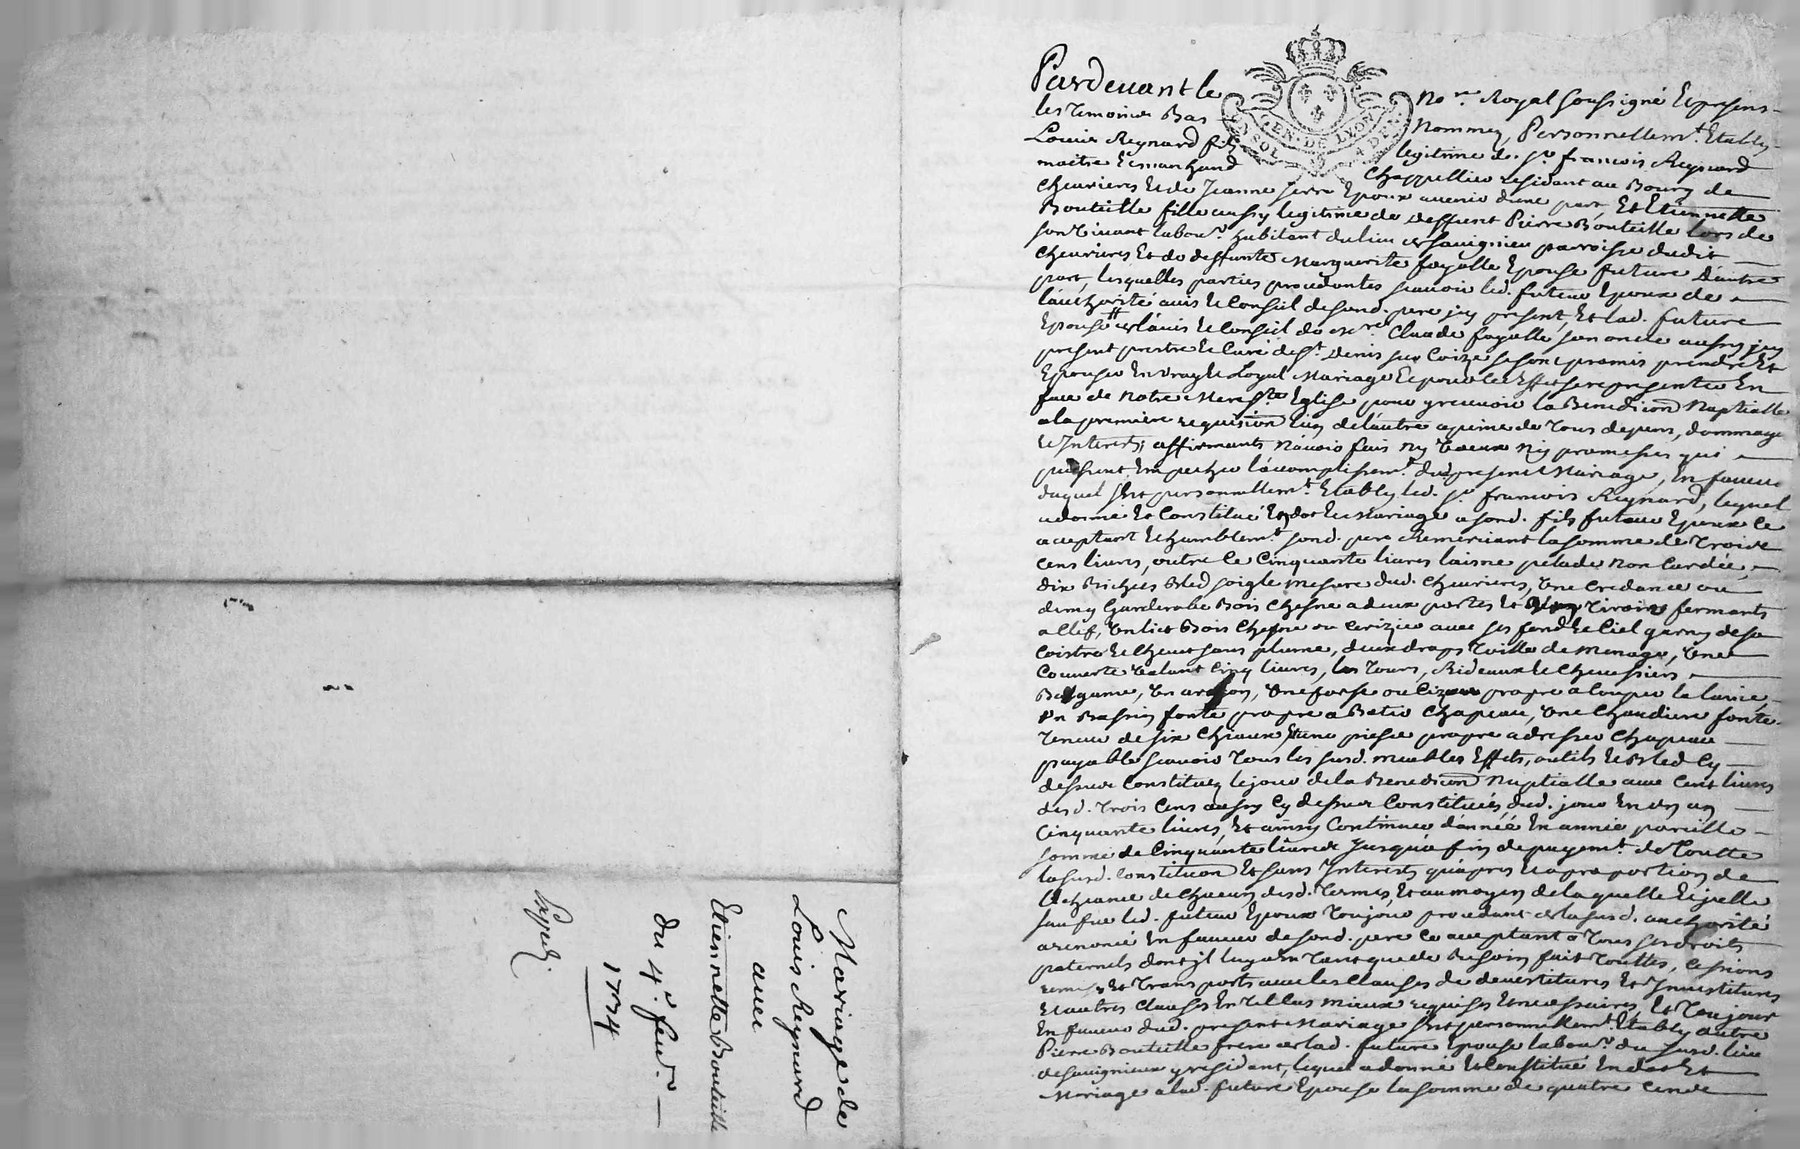 Mariage de
Louis Reynard
avec
Etiennette Bouteille
du 4e. feur.
1734
GEN. DE LYON
Pardevant le No.re Royal soussigné Et presens
les temoins Bas Nommez, Personnellemt. Etably
Louis Reynard fils legitime de sr. francois Reynard
maitre Et marchand Chappellier residant au Bourg de
Chevrieres Et de Jeanne serre Epoux avenir d'une part, Et Etiennette
Bouteille fille aussy legitime de deffunt Pierre Bouteille lors de
son vivant labour. habitant du lieu de savignieu parroisse dudit
Chevrieres Et de deffunte Marguerite fayolle Epouse future d'autre
part, lesquelles parties procedantes scavoir led. futeur Epoux de
l'authorité avis Et Conseil de sond. pere icy present, Et lad. future
Epouse de l'avis Et Conseil de Mre. Claude fayolle son oncle aussy icy
present prestre Et Curé de st. Denis sur Coize se sont promis prendre Et
Epouser En vray Et Loyal Mariage Et pour les Effet se representer En
face de Notre Mere ste. Eglise pour y recevoir la Benediction Nuptialle
a la premiere requisition l'un de l'autre a peine de tous depens, dommage
Et Interets; affirmants n'avoir fait ny vœux ny promesses qui
puissent Empecher l'accomplissemt. du present Mariage, En faveur
duquel s'est personnellemt. Etably led. sr. francois Reynard, lequel
a donné Et Constitué En dot Et Mariage a sond. fils futeur Epoux Ce
acceptant Et humblemt. sond. pere Remerciant la somme de trois
cens livres, outre Ce Cinquante livres laisne pelade non Cardée,
dix Bichets Bled soigle mesure dud. Chevrieres, Une Credance ou
demy Garderobe Bois Chesne a deux portes Et tiroirs fermants
a Clef, Un lict Bois Chesne ou Cerizier avec ses fond Et Ciel garny de sa
Coistre Et Chevet sans plume, deux draps toille de menage, Une
Couverte valant Cinq livres, les tours, Rideaux Et Chevessiers
Bergame, Un arçon, Une forse ou Cizeau propre a Couper la laine,
Un Bassin fonte propre a Batir Chapeau, Une Chaudiere fonte
teneur de six Chapeaux Et une piesse propre a dresser Chapeau
payable scavoir tous les susd. meubles Effets, outils Et Bled Cy
dessus Constituez le jour de la Benediction Nuptialle avec Cent livres
desd. trois Cens aussy Cy dessus Constituées, dud. jour En un an
Cinquante livres, Et ainsy Continuer d'année En année pareille
somme de Cinquante livres jusqu'a fin de payemt. de toutte
la susd. Constitution Et sans Interets qu'apres Et a proportion de
l'Echeance de Chacun desd. termes, Et au moyen de laquelle Et icelle
sauf led. futeur Epoux toujour procedant de la susd. authorité
a renoncé En faveur de sond. pere Ce acceptant a tous ses droits
paternels dont il luy En tant que de Besoin fait touttes, Cessions
remises Et transports avec les Clauses de devestitures Et Investitures
Et autres Clauses En tel Cas mieux requises Et necessaires, Et toujour
En faveur dud. present Mariage s'est personnellemt. Etably autre
Pierre Bouteille frere de lad. future Epouse labour. du susd. lieu
de savignieux y residant, lequel a donné Et Constitué En dot Et
Mariage a lad. future Epouse la somme de quatre Cens